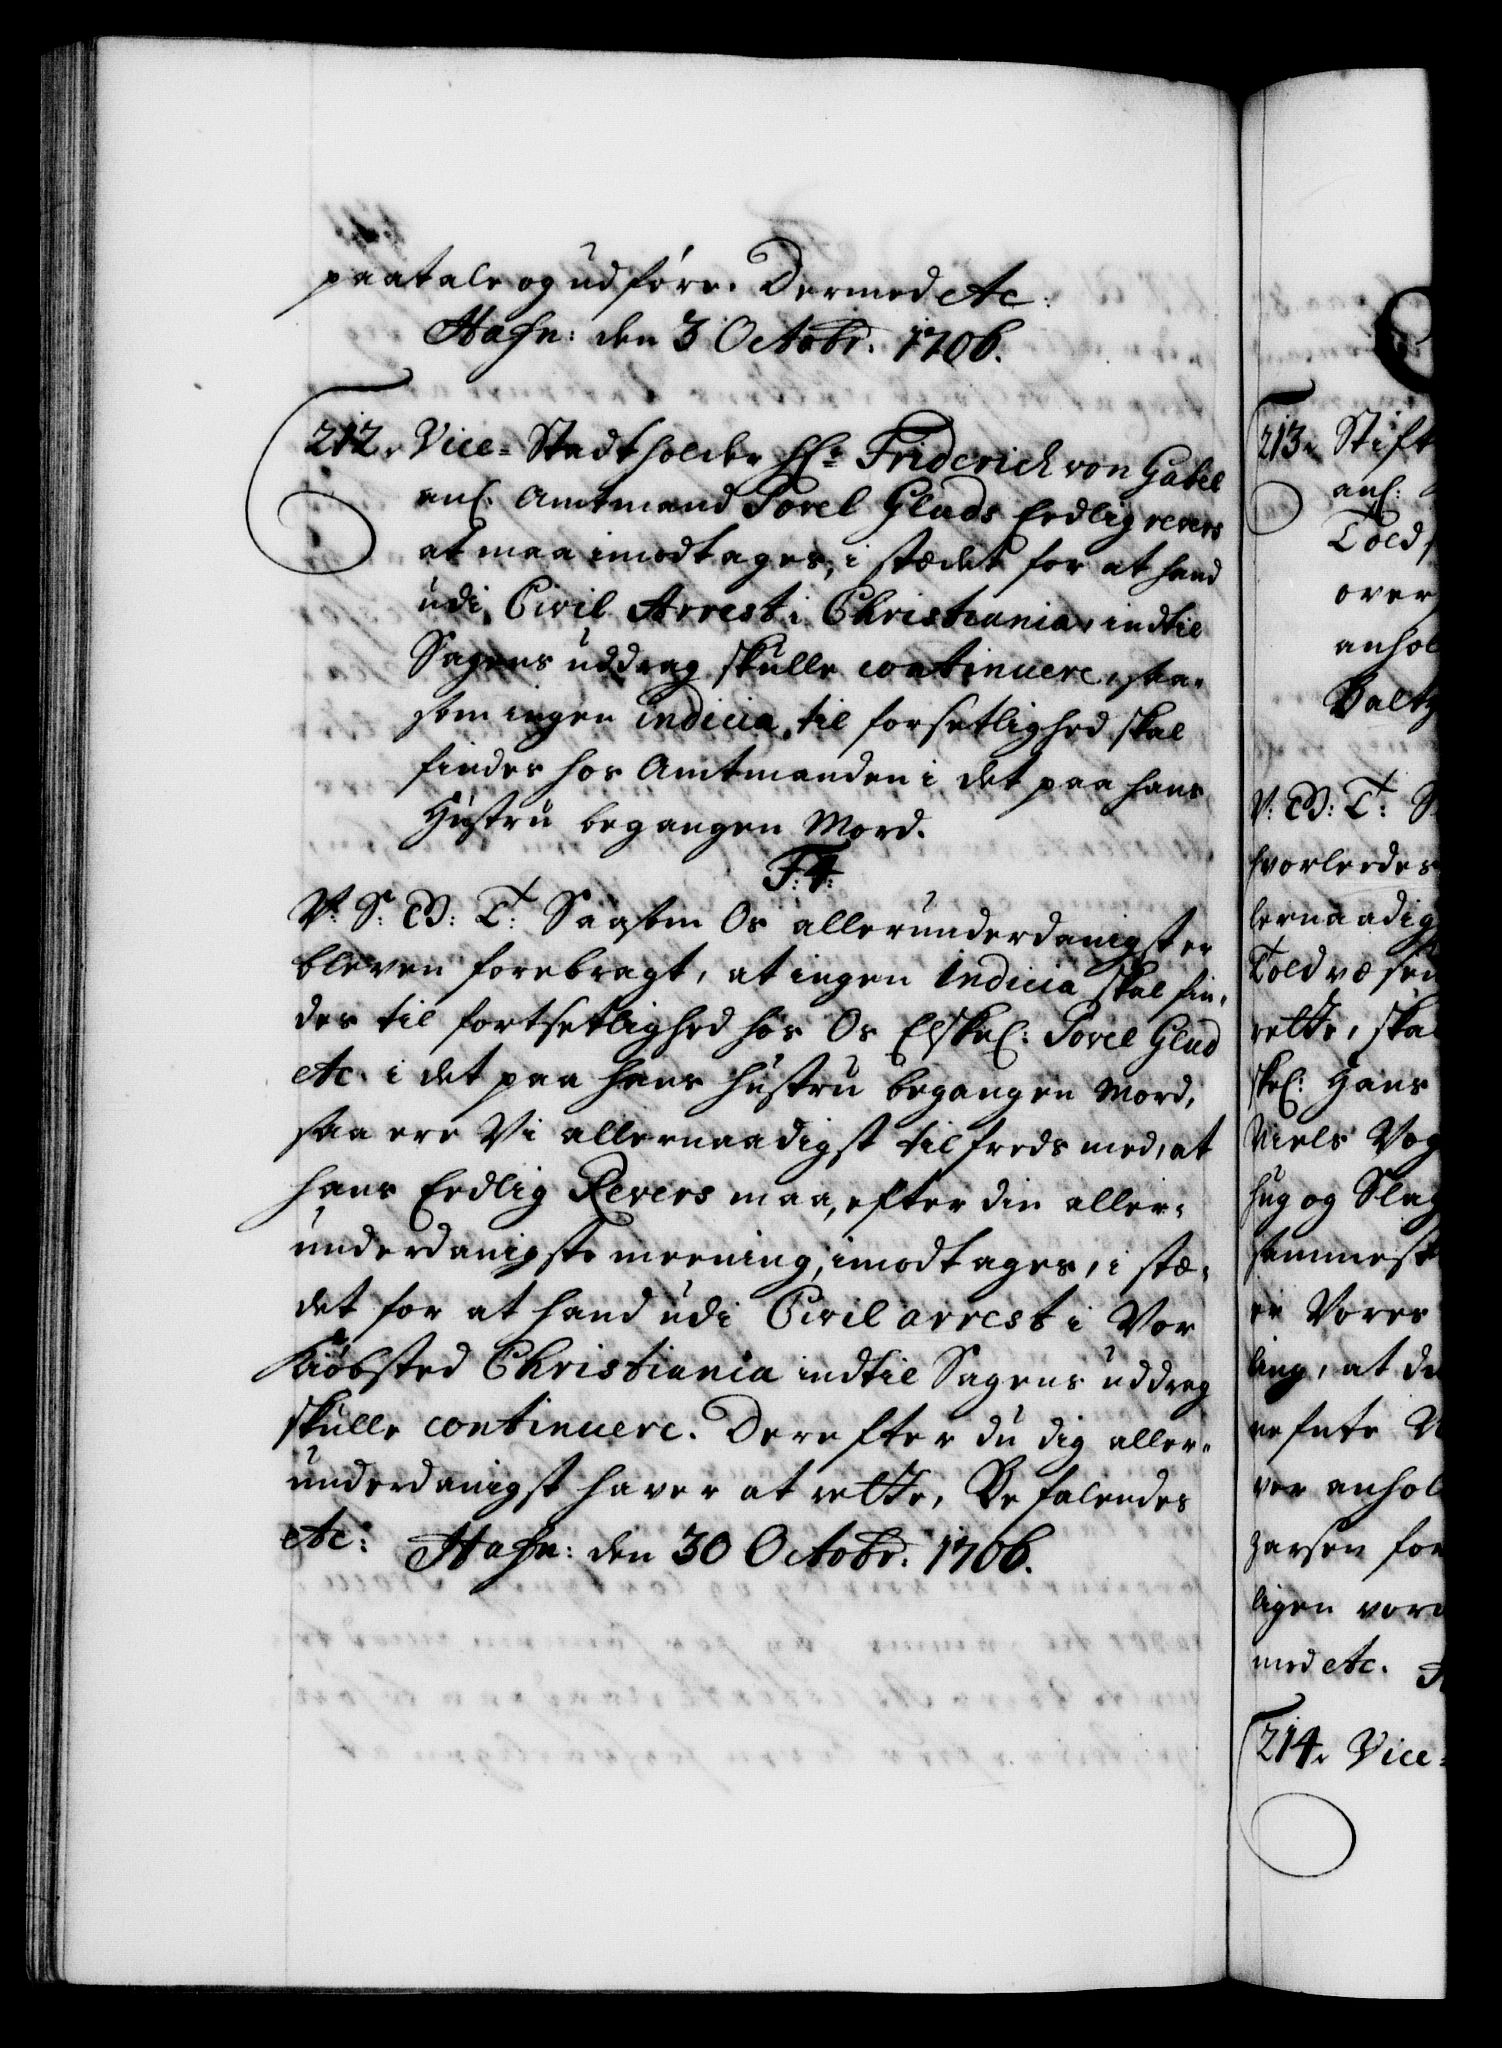 paatale og udføre. Dermed etc:
Hafn: den 3 Octobr. 1706.
212. Vice-Stadtholder Hr: Friderich von Gabel
anl: Amtmand Povel Glads Eedlig revers
at maa imodtages, i stædet for at hand
udi Civil Arrest i Christiania, indtil
Sagens uddrag skulle continuere, saa-
som ingen indicia til forsetlighed skal
findes hos Amtmanden i det paa hans
Hustru begangen Mord.
F:4:
V: S: G: T: Saasom Os allerunderdanigst er
bleven forebragt, at ingen indicia skal fin-
des til fortsetlighed hos Os Elskel: Povel Glad
etc. i det paa hans hustru begangen Mord,
saa ere Vi allernaadigst tilfreds med, at
hans Eedlig Revers maa, efter din aller-
underdanigste meening, imodtages, i stæ-
det for at hand udi Civil arrest i Vor
Kiøbsted Christiania indtil Sagens uddrag
skulle continuere. Derefter du dig aller-
underdanigst haver at rette, Befalendes
etc: Hafn: den 30 Octobr. 1706.
213. Stift
anl:
Told
over
anhol
Baltz
V: G: T: S
hvorledes
lernaadig
Toldvæsen
rette, skal
skel: Hans
Niels Vog
hug og Slag
sammest
er Vores
ling, at du
nefnte N
ver anhol
zersen for
ligen vor
med etc.
214. Vice-